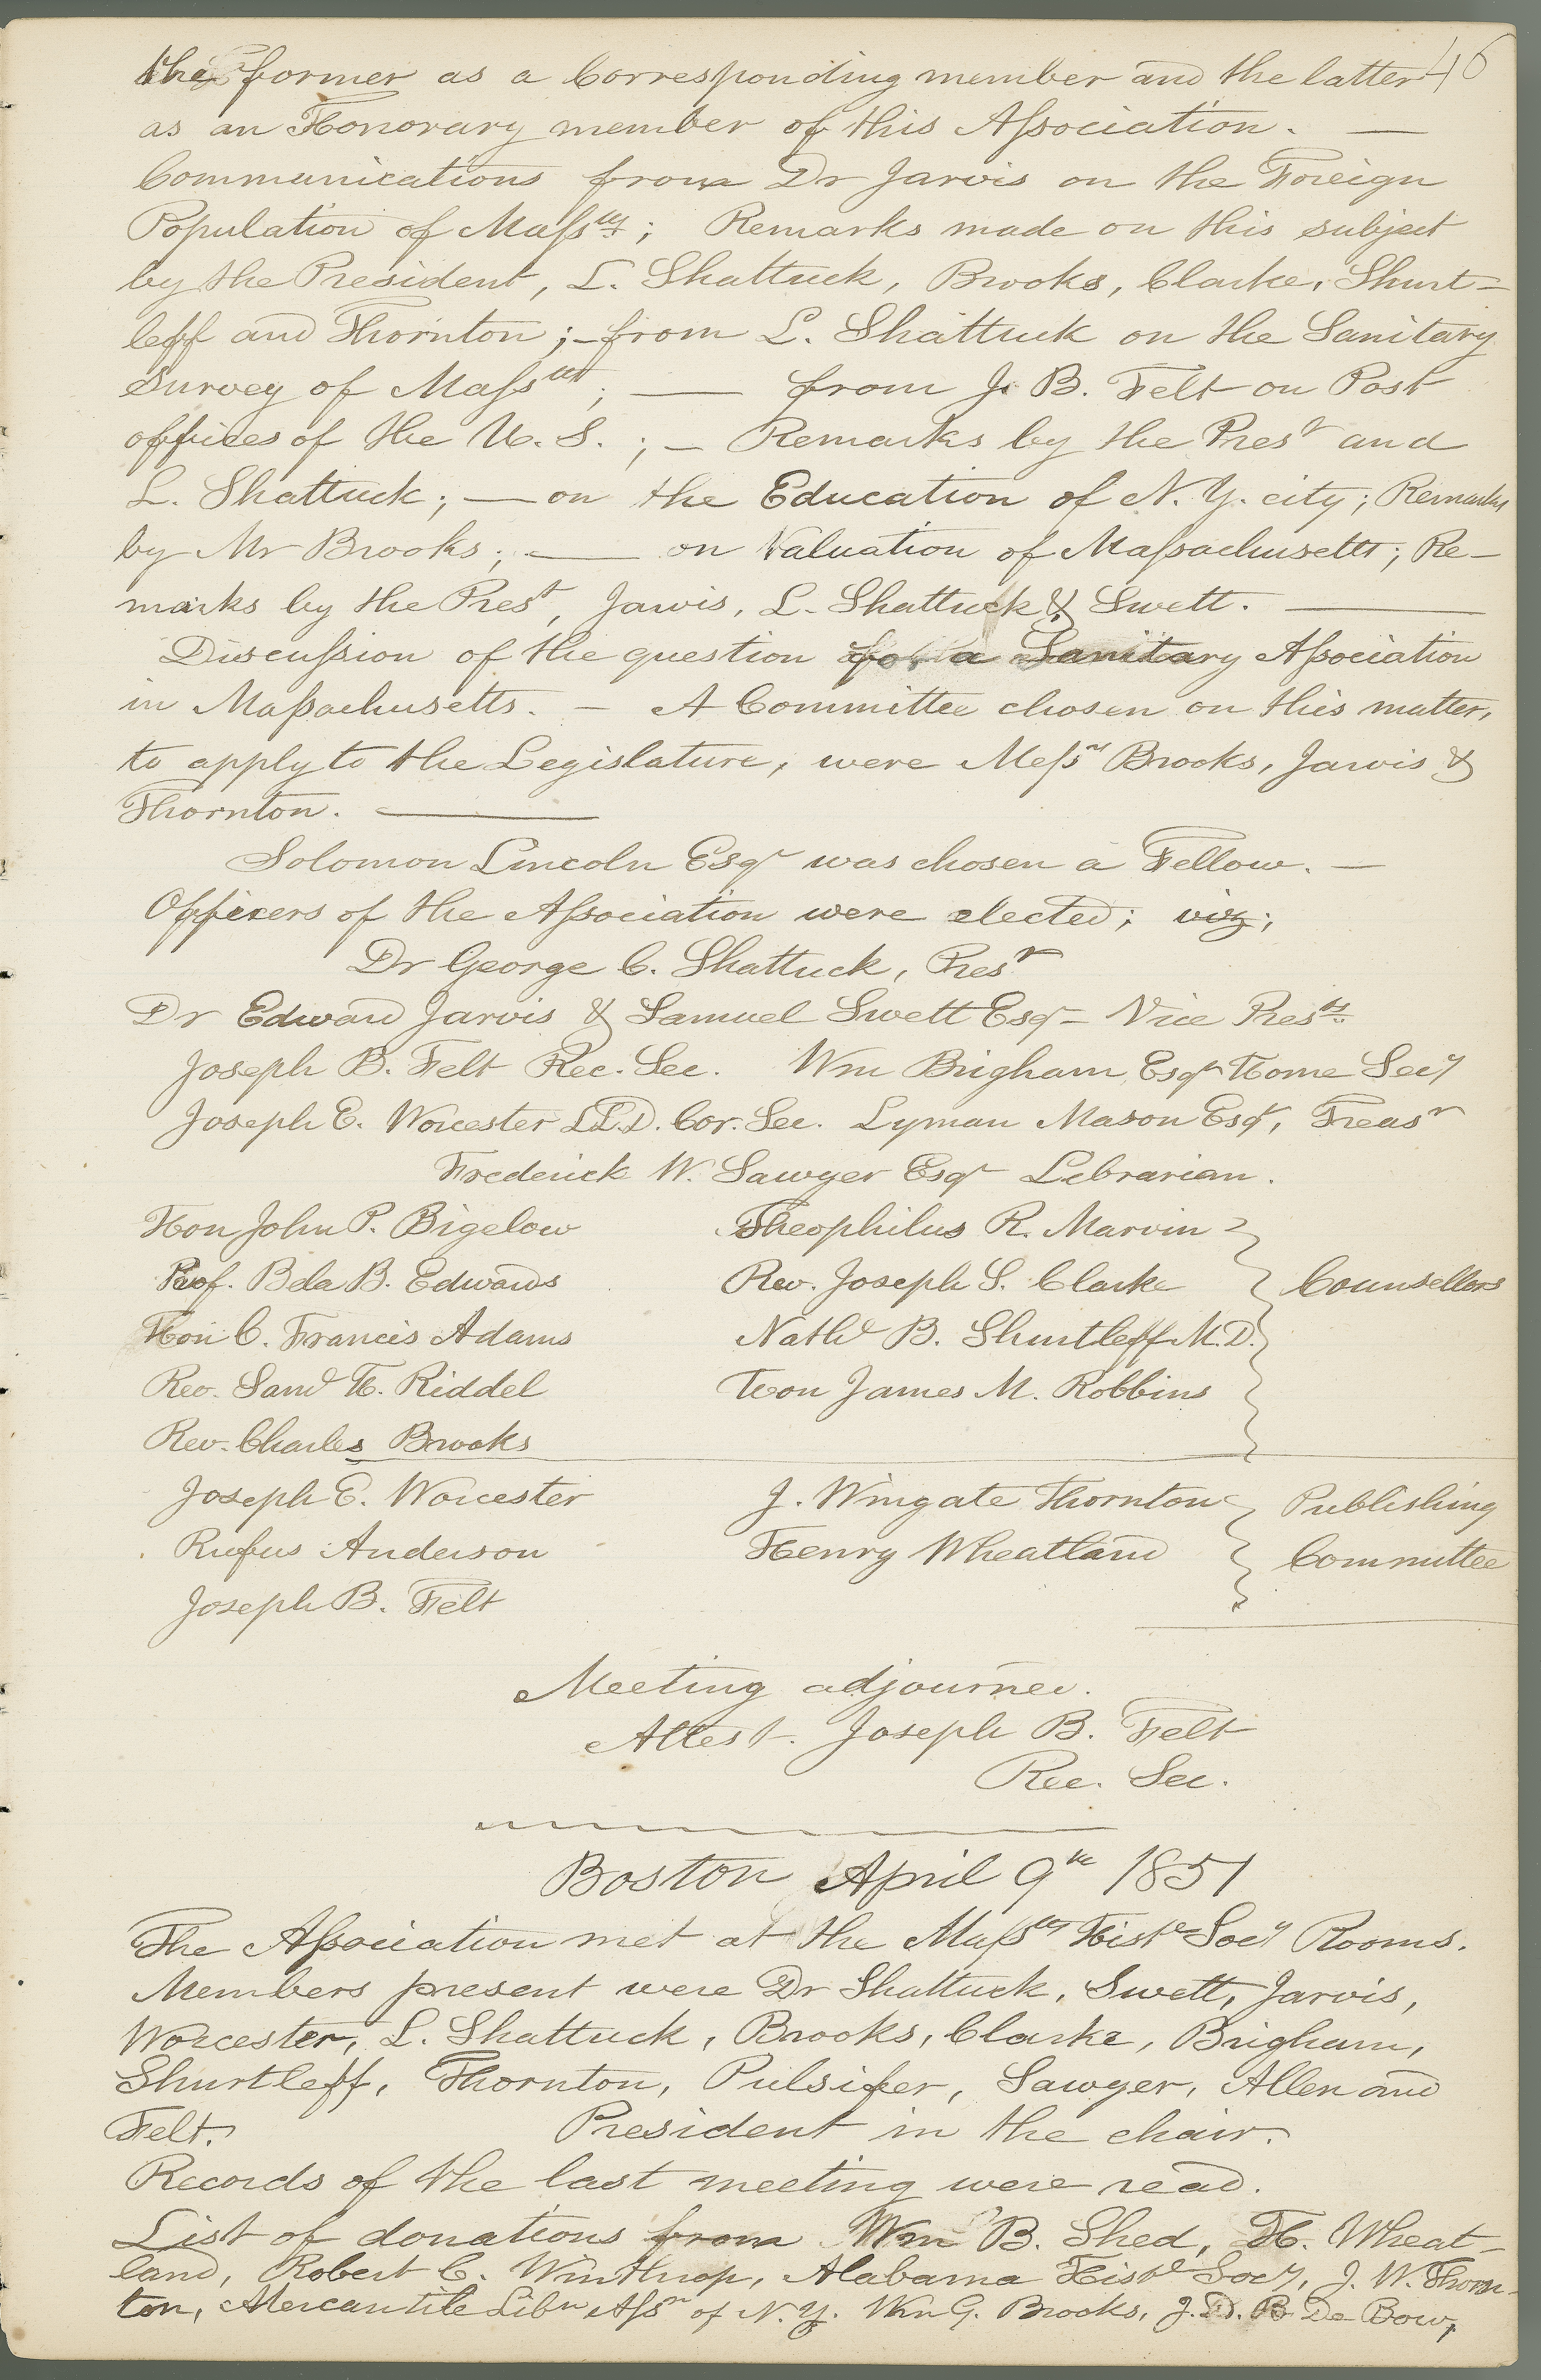 46
the former as a Corresponding member and the latter
as an Honorary member of this Association. —
Communications from Dr Jarvis on the Foreign
Population of Massts; Remarks made on this subject
by the President, L. Shattuck, Brooks, Clarke, Shurt-
leff and Thornton; – from L. Shattuck on the Sanitary
Survey of Massts; — from J. B. Felt on Post
offices of the U. S.; – Remarks by the Prest and
L. Shattuck; — on the Education of N. Y. city; Remarks
by Mr Brooks; — on Valuation of Massachusetts; Re-
marks by the Prest, Jarvis, L. Shattuck & Swett. —
Discussion of the question for a Sanitary Association
in Massachusetts. – A Committee chosen on this matter,
to apply to the Legislature, were Messrs Brooks, Jarvis &
Thornton. —
Solomon Lincoln Esqr was chosen a Fellow. —
Officers of the Association were elected; viz;
Dr George C. Shattuck, Prest
Dr Edward Jarvis & Samuel Swett Esq – Vice Prests
Joseph B. Felt Rec. Sec. Wm Brigham Esqr Home Secy
Joseph E. Worcester LL.D. Cor. Sec. Lyman Mason Esqr, Treasr
Frederick W. Sawyer Esqr Librarian.
Hon John P. Bigelow Theophilus R. Marvin
Prof. Bela B. Edwards Rev. Joseph S. Clarke Counsellors
Hon C. Francis Adams Nathl B. Shurtleff M.D.
Rev. Saml H. Riddel Hon James M. Robbins
Rev. Charles Brooks
Joseph E. Worcester J. Wingate Thornton Publishing
Rufus Anderson Henry Wheatland Committee
Joseph B. Felt
Meeting adjourned.
Attest. Joseph B. Felt
Rec. Sec.
Boston April 9th 1851
The Association met at the Massts Histl Socy Rooms.
Members present were Dr Shattuck, Swett, Jarvis,
Worcester, L. Shattuck, Brooks, Clarke, Brigham,
Shurtleff, Thornton, Pulsifer, Sawyer, Allen and
Felt. President in the chair.
Records of the last meeting were read.
List of donations from Wm B. Shed, H. Wheat-
land, Robert C. Winthrop, Alabama Histl Socy, J. W. Thorn-
ton, Mercantile Libry Assn of N. Y. Wm G. Brooks, J. D. B De Bow,